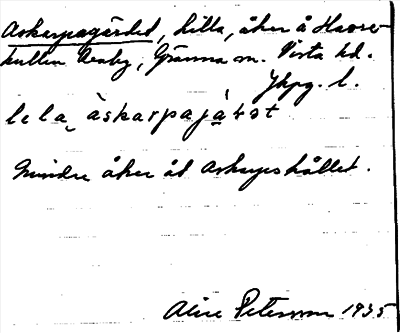 Askarpagärdet, Lilla, åker å Havre-
kullen Uvaby, Gränna sn. Vista hd.
Jkpg. l.
lela, àskarpajá̱ʈət
Mindre åker åt Askeryshållet.
Alice Petersson 1935